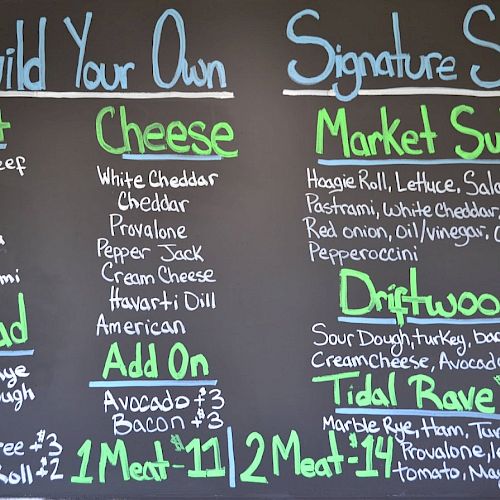 Your Own
Cheese
White Cheddar
Cheddar
Provalone
Pepper Jack
Cream Cheese
Havarti Dill
American
Add On
Avocado +$3
Bacon +$3
1 Meat - $11 | 2 Meat - $14
Signature S
Market Su
Hoagie Roll, Lettuce, Sala
Pastrami, White Cheddar
Red onion, Oil/vinegar,
Pepperoccini
Driftwoo
Sour Dough, turkey, bac
Cream Cheese, Avocado
Tidal Rave
Marble Rye, Ham, Tur
Provalone, le
Tomato, Ma